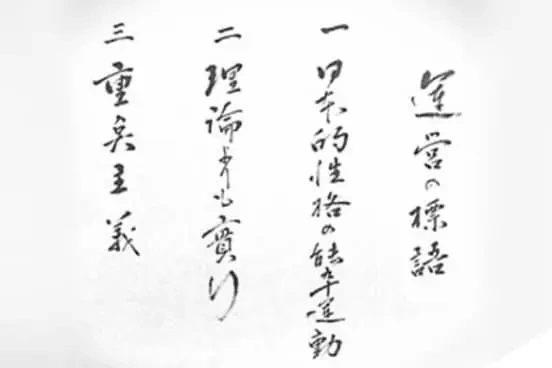 運営の標語
一 日本的性格の能率運動
二 理論よりも實行
三 重奌主義